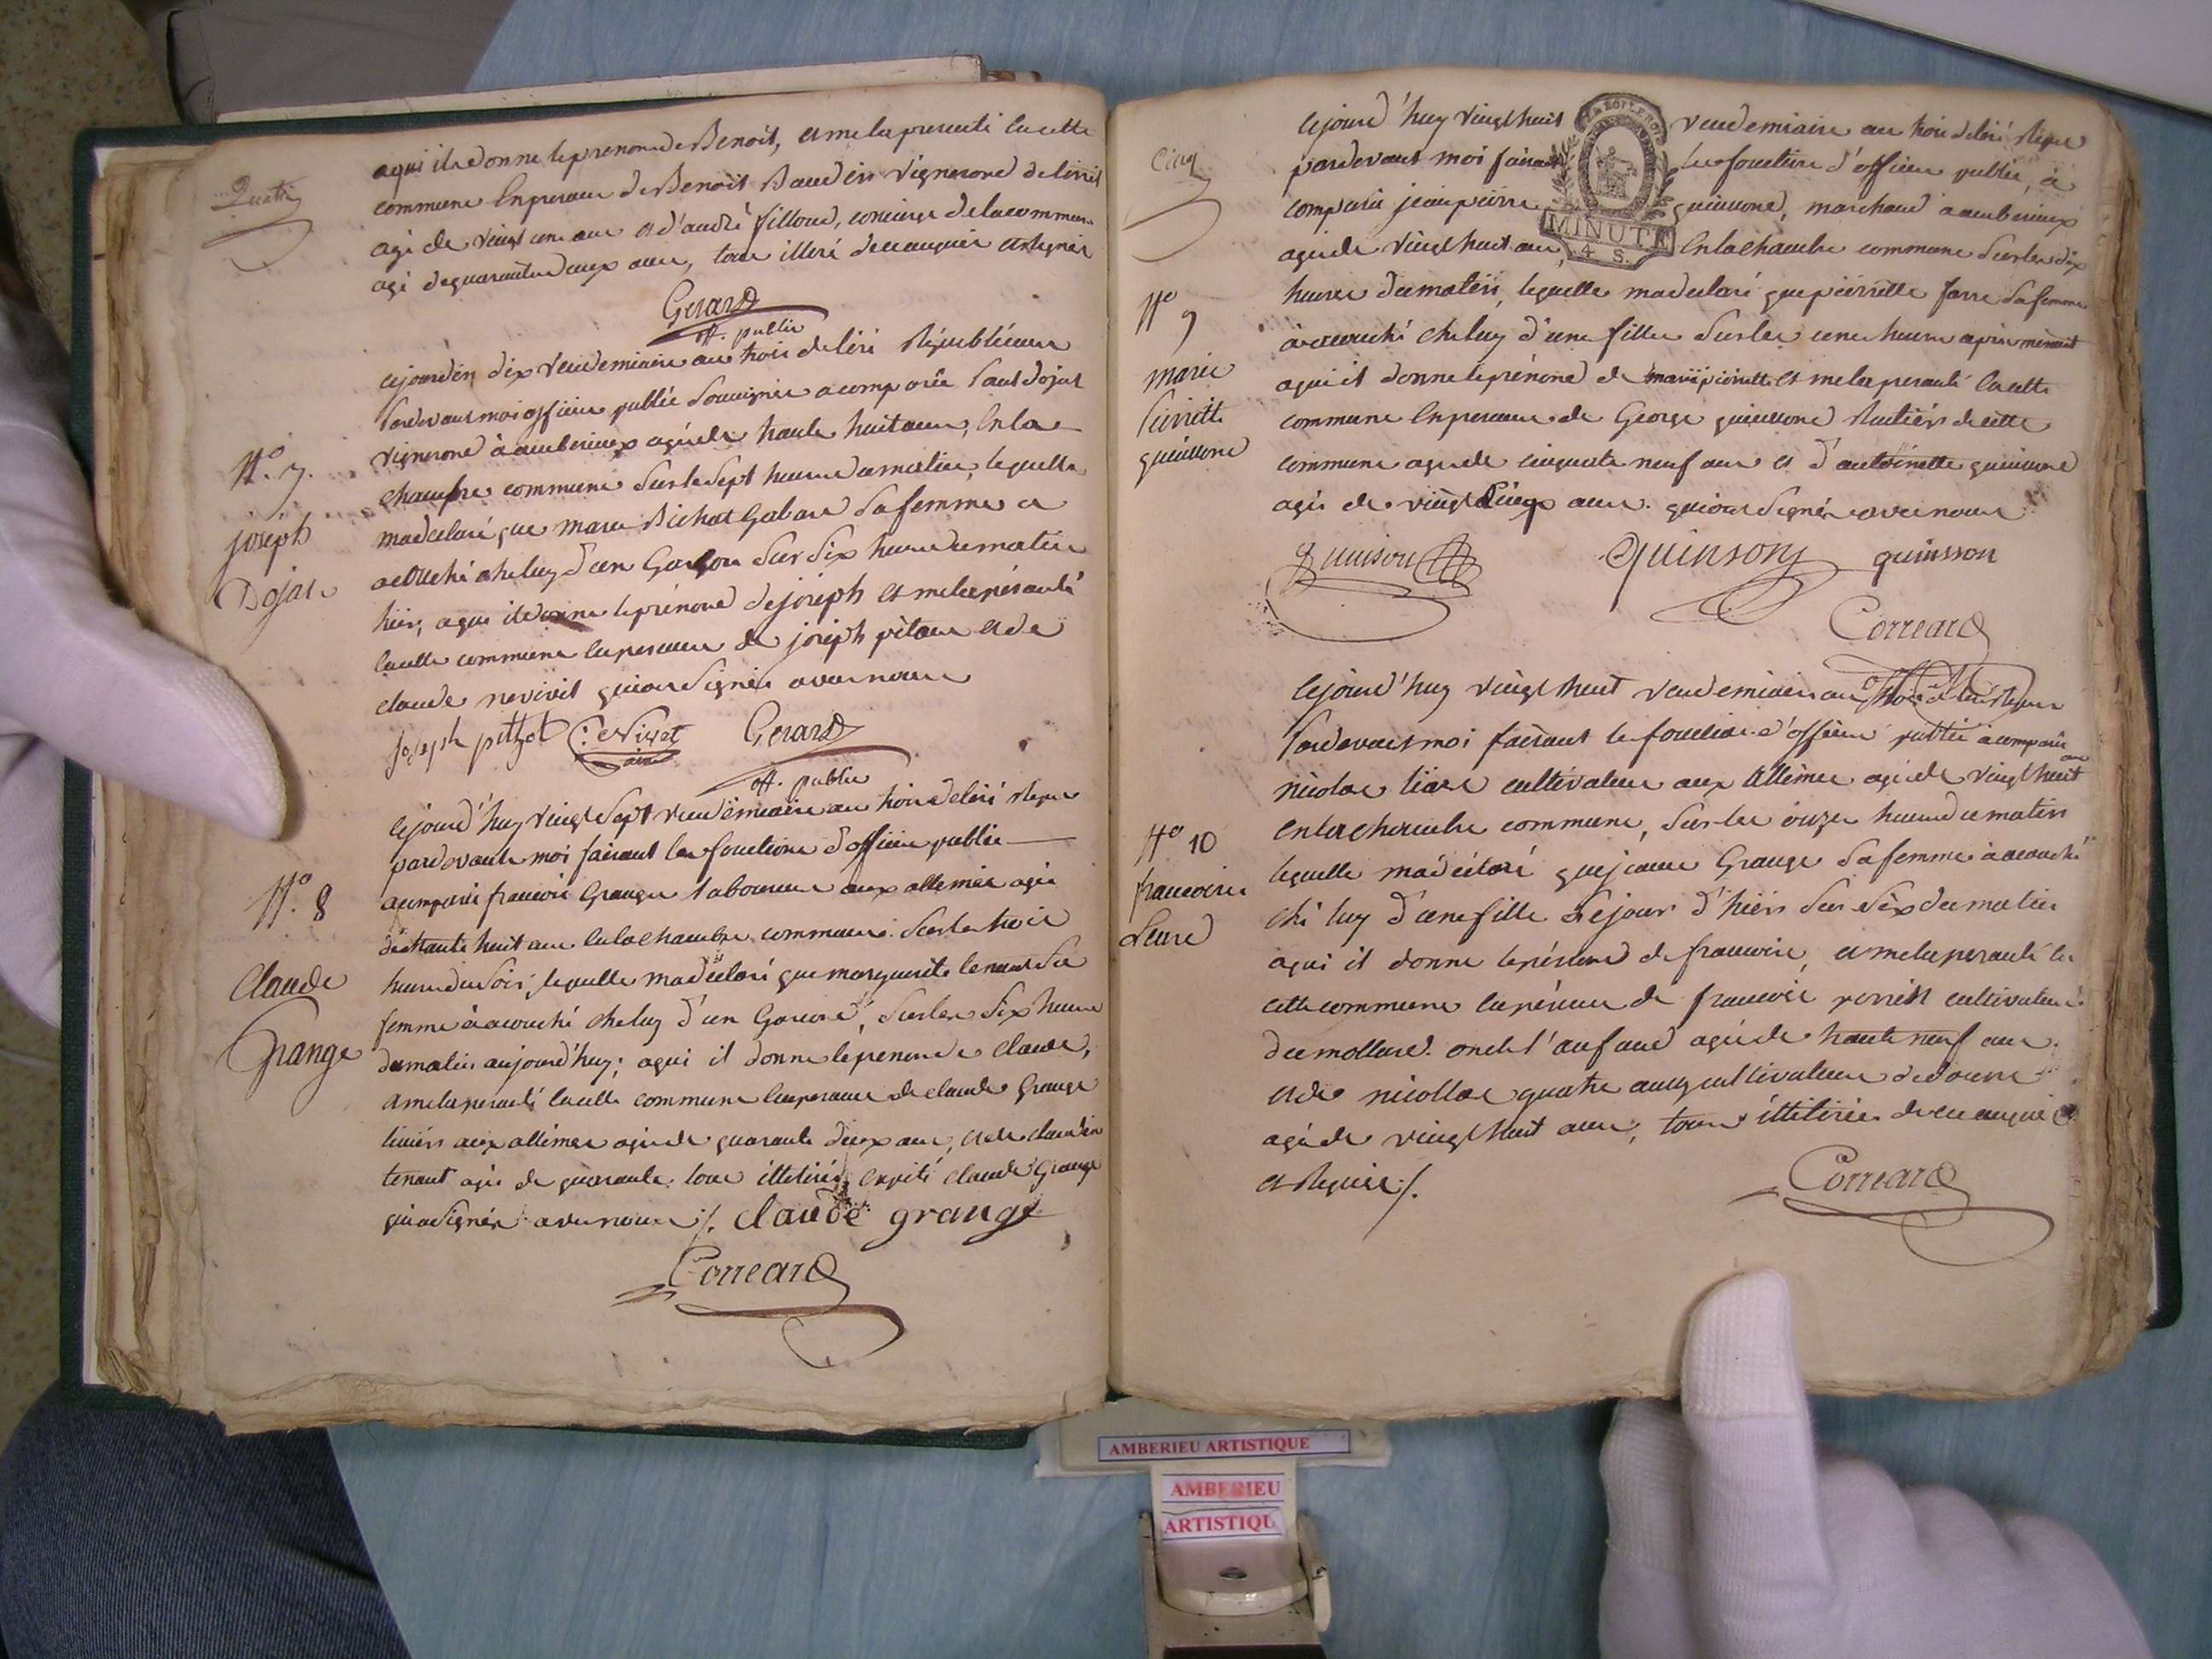 Quatre
a qui il a donne le prenom de Benoit, et me la presenté en cette
commune En presence de Benoit Baudin vigneron de
agé de vingt un ans et d'andré filloud, concierge de la commune
agé de quarante deux ans, tous illeré de ce enquis et signer
Gerard
off. public
N.° 7.
joseph
Dojat
cejourdui dix vendemiaire an trois de l'ere Républicaine
Pardevant moi officier public soussigner a comparüe Paul dojat
vigneron à amberieux agé de trante huit ans, En la
chambre commune sur le sept heure du matin, lequelle
ma declaré que marie Bichat Gabard sa femme a
acouché ché luy d'un Garçon sur six heure du matin
hier, a qui il donne le prénom de joseph et me la présenté
en cette commune en presence de joseph pitou et de
claude nevivet qui on signer avec nous
joseph pithot C: neVivet Gerard
ainé off. public
N.° 8
Claude
Grange
cejourd'huy vingt sept vendemiaire an trois de l'eré Repu
pardevant moi faisant les fonctions d'officier public
acomparu francois Grange laboureur aux allemes agé
de trante huit ans en la chambre commune sur les trois
heure du soir, lequelle ma déclaré que marguerite tenant sa
femme à acouché ché luy d'un Garcon, sur les six heure
du matin aujourd'huy; aqui il donne le prenom de claude,
a me la presenté en cette commune en presence de claude Grange
aux allemes agé de quarante deux ans, et de claudin
tenant agé de quarante tous illetirés, excepté claude Grange
qui a signér avec nous ./. claude grange
Correard
Cinq
MINUTE
4 S.
N° 9
marie
Pierrette
quinsson
Cejourd'huy vingt huit vendemiaire an trois de l'eré Repu
pardevant moi faisant les fonctions d'officier public, à
comparu jean pierre quinsson, marchand a amberieux
agé de vingt huit ans, En la chambre commune sur les dix
heures du matin, lequelle ma declaré que pierrette farre sa femme
à acouché ché luy d'une fille sur les une heure aprè minuit
a qui il donne le prénom de marie pierrette et me la presenté en cette
commune En presence de George quinsson Rentiér de cette
commune agé de cinquate neuf ans et d'antoinette quinsson
agé de vingt cinq ans. qui on signér avec nous
Quinson Quinson quinsson
Correard
N° 10
francoise
Liard
Cejourd'huy vingt huit vendemiaire an trois de l'eré Repu
Pardevant moi faisant les fonctions d'officier public acomparu
nicolas liard cultivateur aux allemes agé de vingt huit ans
en la chambre commune, sur les onze heure du matin
lequelle ma déclaré que jeanne Grange sa femme à acouché
ché luy d'une fille le jour d'hier sur six du matin
a qui il donne le prénom de francoise, et me la presenté en
cette commune en présence de francois perrét cultivateur
du mollard oncle l'anfand agé de trante neuf ans.
et de nicollas quatre ans cultivateur
agé de vingt huit ans, tous illitirés de ce enquis
et Requis ./.
Correard
AMBERIEU ARTISTIQUE
AMBERIEU
ARTISTIQU